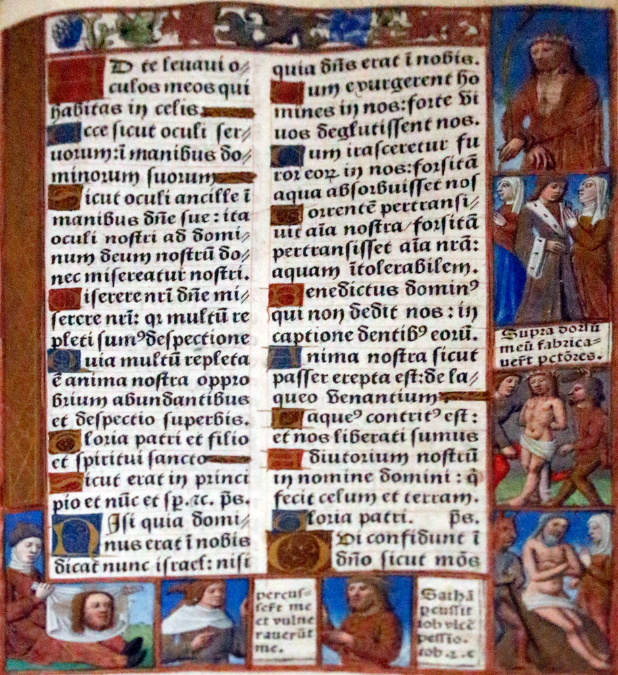 AD te leuaui o⸗
culos meos qui
habitas in celis.
Ecce sicut oculi ser⸗
uorum: ī manibus do⸗
minorum suorum
Sicut oculi ancille ī
manibus dn̄e sue: ita
oculi nostri ad domi⸗
num deum nostrū do⸗
nec misereatur nostri.
Miserere nr̄i dn̄e mi⸗
serere nr̄i: qꝛ multū re
pleti sumꝰ despectione
Quia multū repleta
ē anima nostra oppro
brium abundantibus
et despectio superbis.
Gloria patri et filio
et spiritui sancto
Sicut erat in princi
pio et nūc et sp̄. ⁊c. p̄s.
NIsi quia domi⸗
nus erat ī nobis
dicat nunc israel: nisi
quia dn̄s erat ī nobis.
Cum exurgerent ho
mines in nos: forte vi
uos deglutissent nos.
Cum irasceretur fu
ror eoꝝ in nos: forsitā
aqua absorbuisset nos
Torrentē pertransi⸗
uit aīa nostra/ forsitā
pertransisset aīa nr̄a:
aquam ītolerabilem.
Benedictus dominꝰ
qui non dedit nos: in
captione dentibꝰ eorū.
Anima nostra sicut
passer erepta est: de la⸗
queo venantium
Laqueꝰ contritꝰ est:
et nos liberati sumus
Adiutorium nostrū
in nomine domini: q̇
fecit celum et terram.
Gloria patri. p̄s.
QVi confidunt ī
dn̄o sicut mōs
Supra dorsū
meū fabrica⸗
uerūt pctōres.
percus⸗
serūt me
et vulne
rauerūt
me.
Sathā
pcussit
iob vlcē
pessīo.
iob .2. c